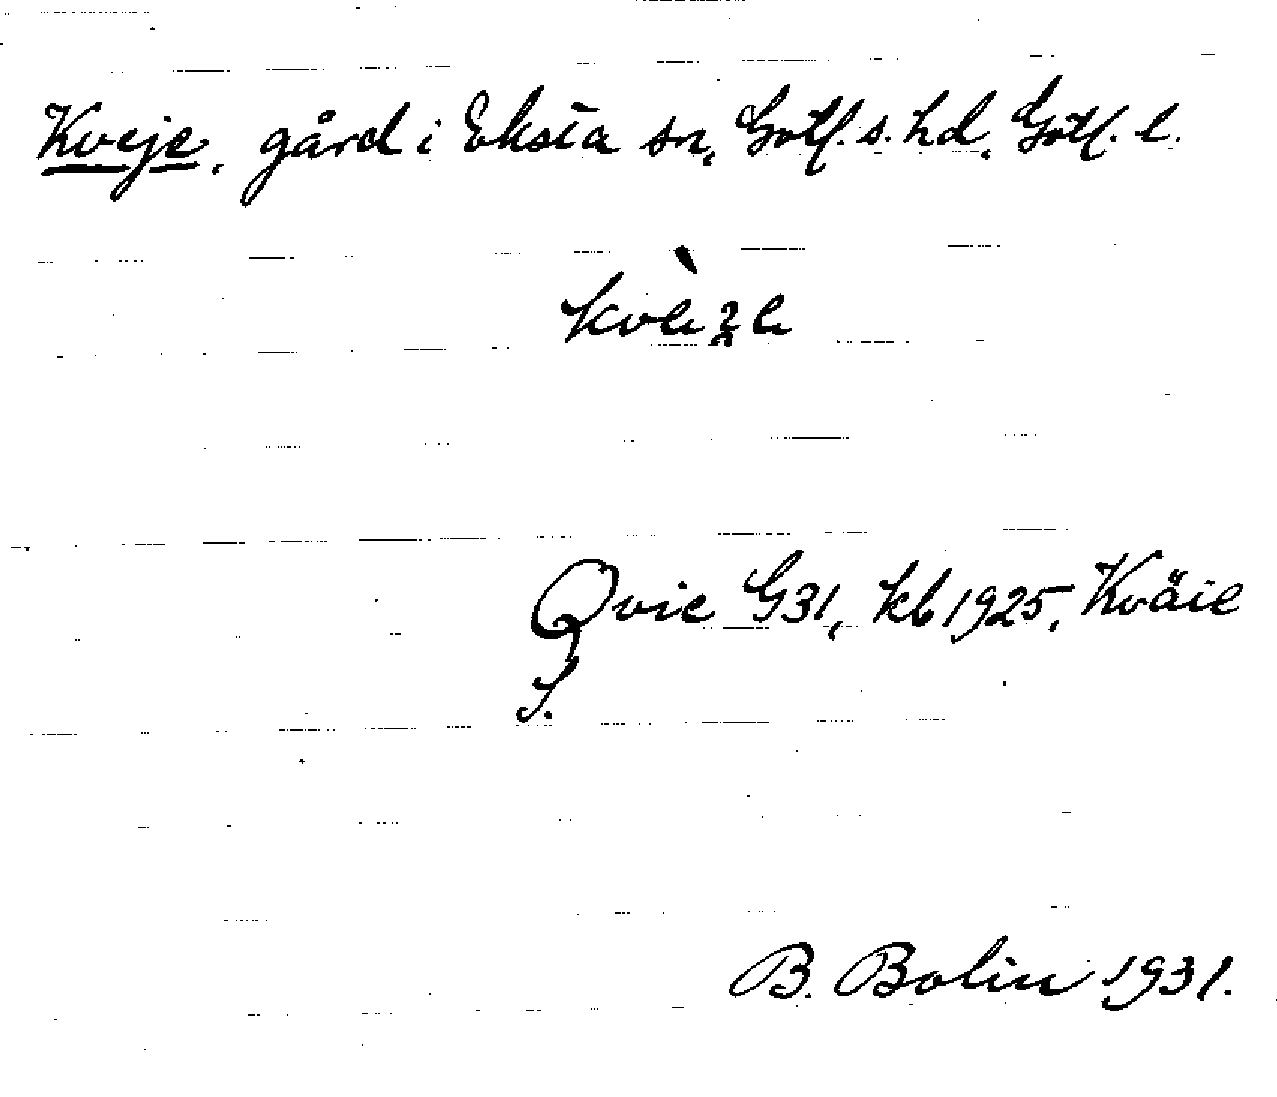 Kveje, gård i Eksta sn, Gotl. s. hd, Gotl. l.
Qvie G31, kb 1925, Kväie
J.
B. Bolin 1931.